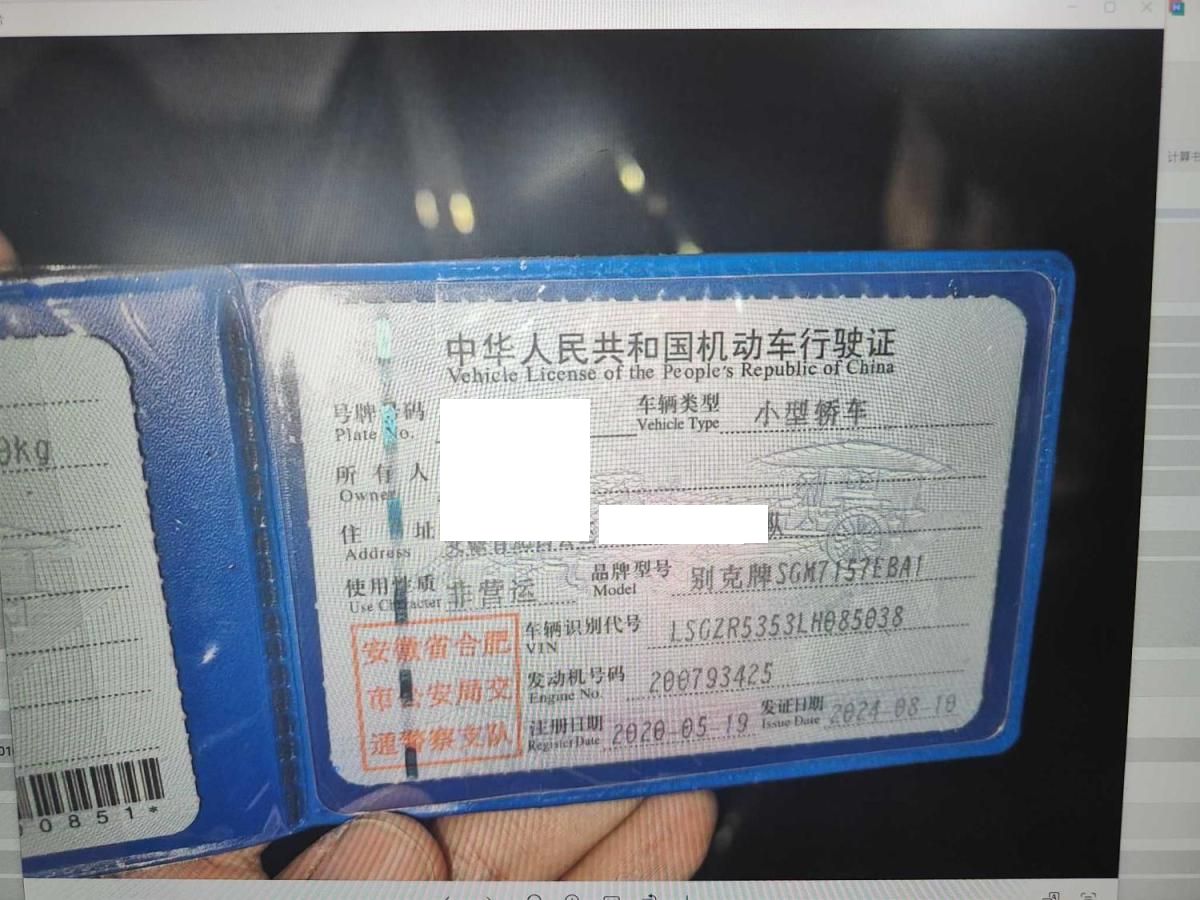 计算书
中华人民共和国机动车行驶证
Vehicle License of the People's Republic of China
号牌号码
Plate No.
车辆类型 小型轿车
Vehicle Type
所有人
Owner
住址 队
Address
使用性质 非营运
Use Character
品牌型号 别克牌SGM7157EBA1
Model
车辆识别代号 LSGZR5353LH085038
VIN
发动机号码 200793425
Engine No.
注册日期 2020-05-19
Register Date
发证日期 2024-08-10
Issue Date
安徽省合肥
市公安局交
通警察支队
0kg
0851*